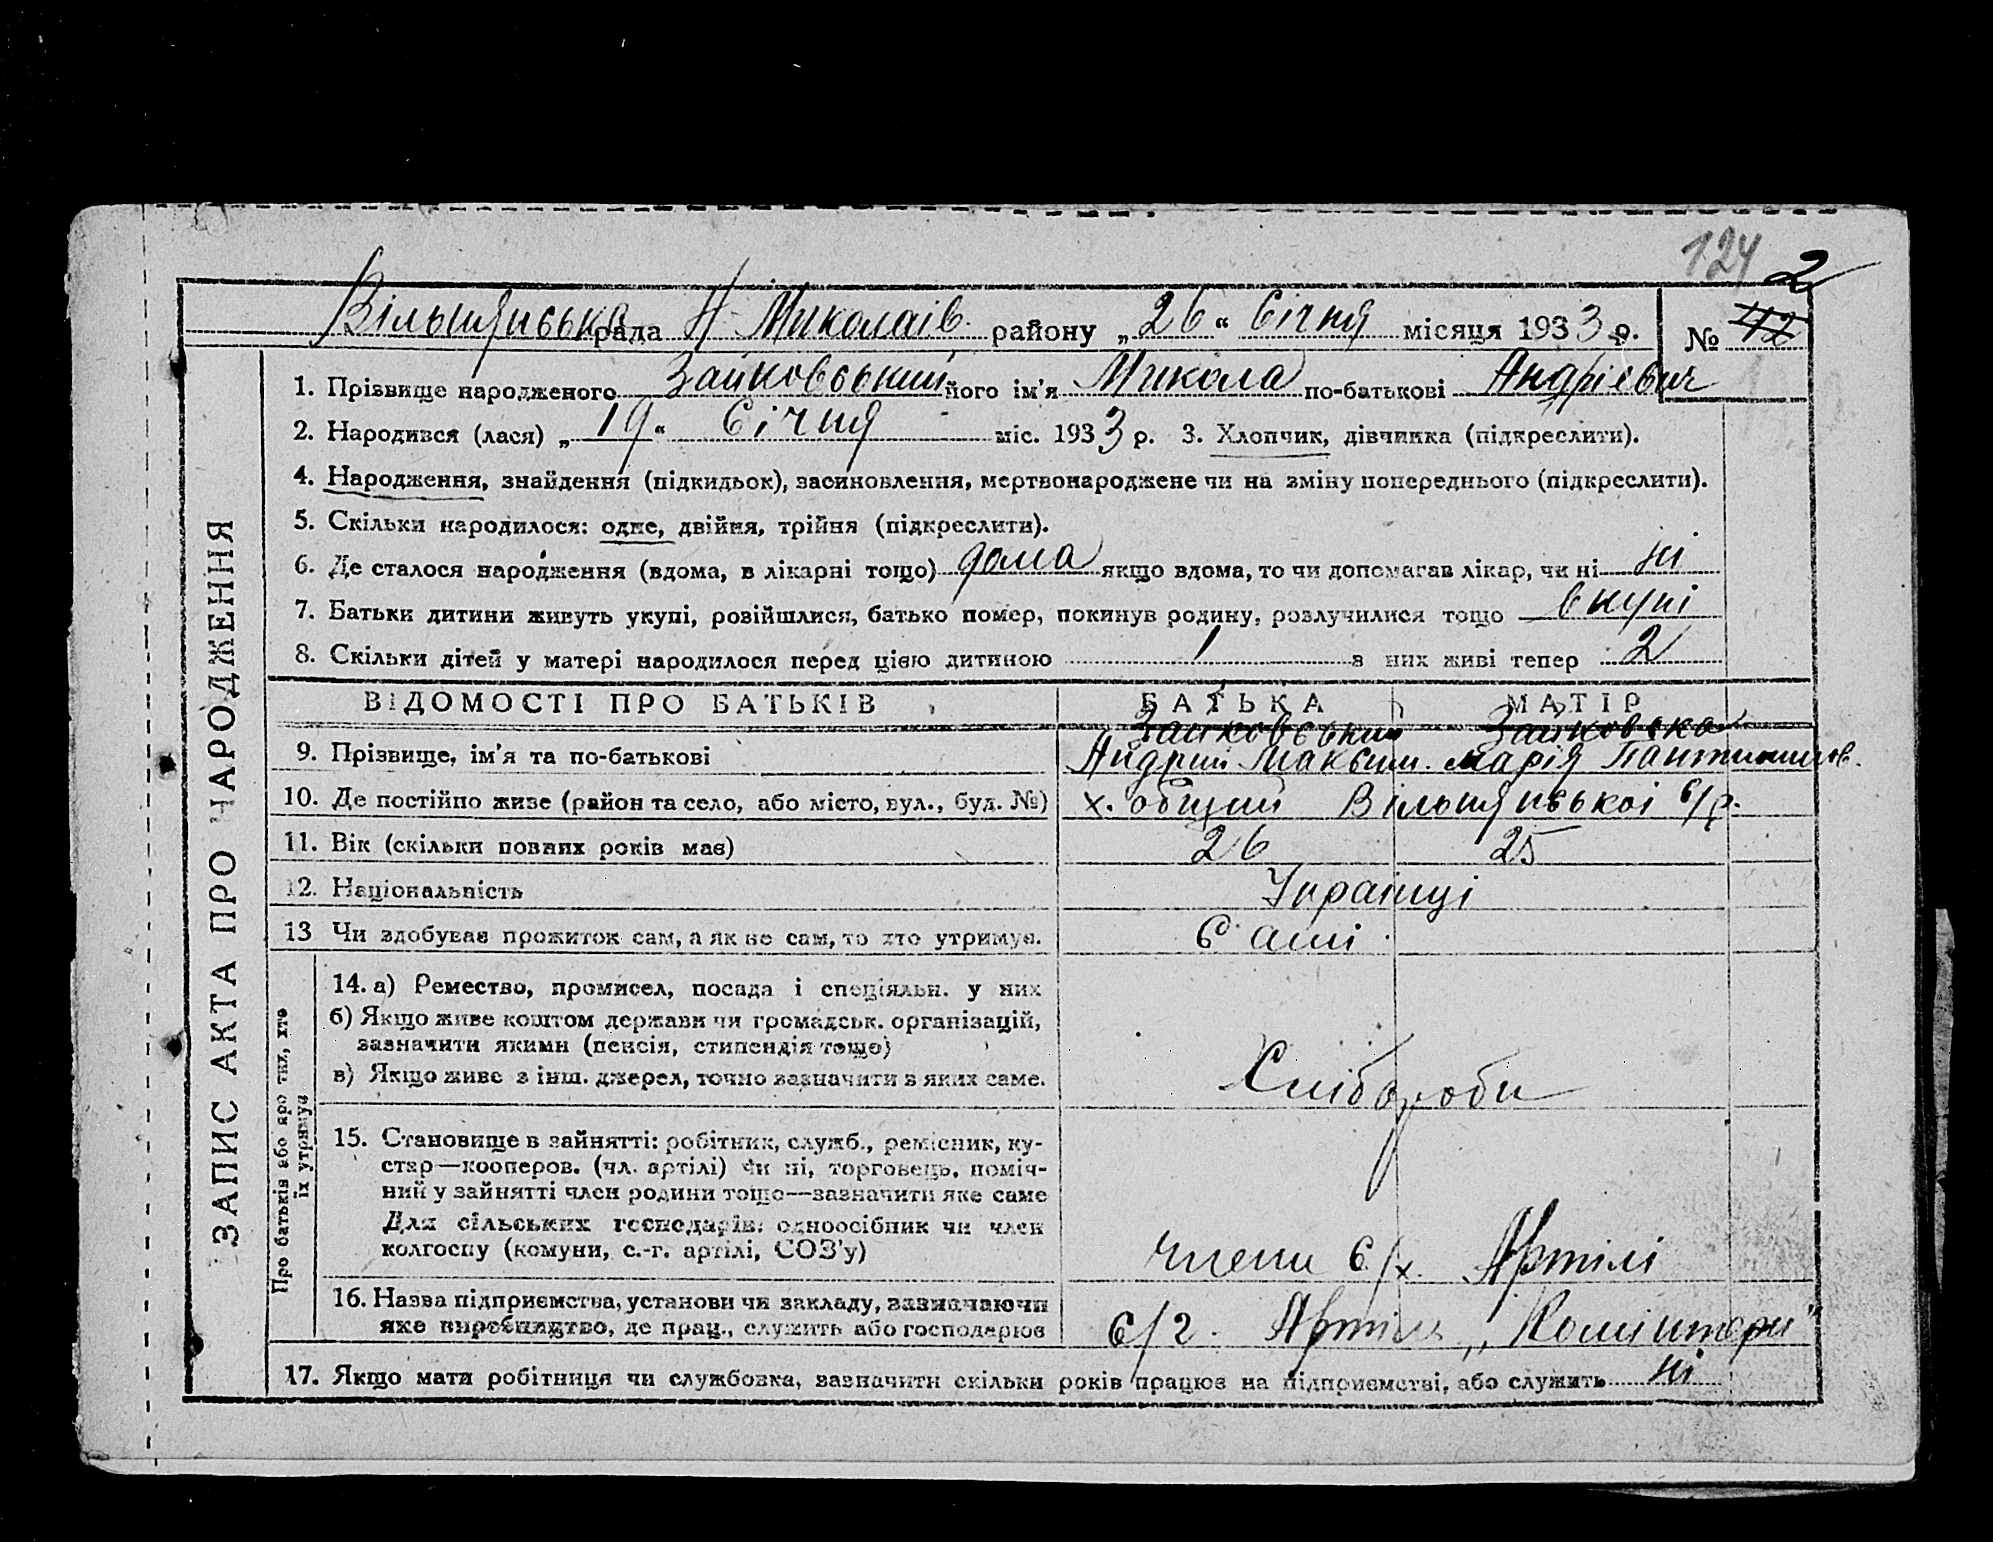 124 2
Вільшянська рада Н-Миколаїв. району „26“ Січня місяця 1933 р. № 112
1. Прізвище народженого Зайковський його ім'я Микола по-батькові Андрієвич
2. Народився (лася) „19“ Січня міс. 1933 р. 3. Хлопчик, дівчинка (підкреслити).
4. Народження, знайдення (підкидьок), засиновлення, мертвонароджене чи на зміну попереднього (підкреслити).
5. Скільки народилося: одне, двійня, трійня (підкреслити).
6. Де сталося народження (вдома, в лікарні тощо) дома якщо вдома, то чи допомагав лікар, чи ні ні
7. Батьки дитини живуть укупі, розійшлися, батько помер, покинув родину, розлучилися тощо вкупі
8. Скільки дітей у матері народилося перед цією дитиною 1 з них живі тепер 2
ВІДОМОСТІ ПРО БАТЬКІВ БАТЬКА МАТІР
Зайковський Зайковська
9. Прізвище, ім'я та по-батькові Андрий Максим. Марія
10. Де постійно живе (район та село, або місто, вул., буд. №) х. общий Вільшянської с/р.
11. Вік (скільки повних років має) 26 25
12. Національність Українці
13 Чи здобуває прожиток сам, а як не сам, то хто утримує. Самі
14. а) Ремество, промисел, посада і спеціяльн. у них
б) Якщо живе коштом держави чи громадськ. організацій,
зазначити якими (пенсія, стипендія тощо)
в) Якщо живе з інш. джерел, точно зазначити з яких саме.
Хлібороби
15. Становище в зайнятті: робітник, служб., ремісник, ку-
стар—кооперов. (чл. артілі) чи ні, торговець, поміч-
ний у зайнятті член родини тощо—зазначити яке саме
Для сільських господарів: одноосібник чи член
колгоспу (комуни, с.-г. артілі, СОЗ'у) члени с/х. Артілі
16. Назва підприємства, установи чи закладу, зазначаючи
яке виробництво, де прац., служить або господарює с/г. Артіль „Комінтерн"
17. Якщо мати робітниця чи службовка, зазначити скільки років працює на підприємстві, або служить ні
ЗАПИС АКТА ПРО НАРОДЖЕННЯ
Про батьків або про тих, хто
їх утримує